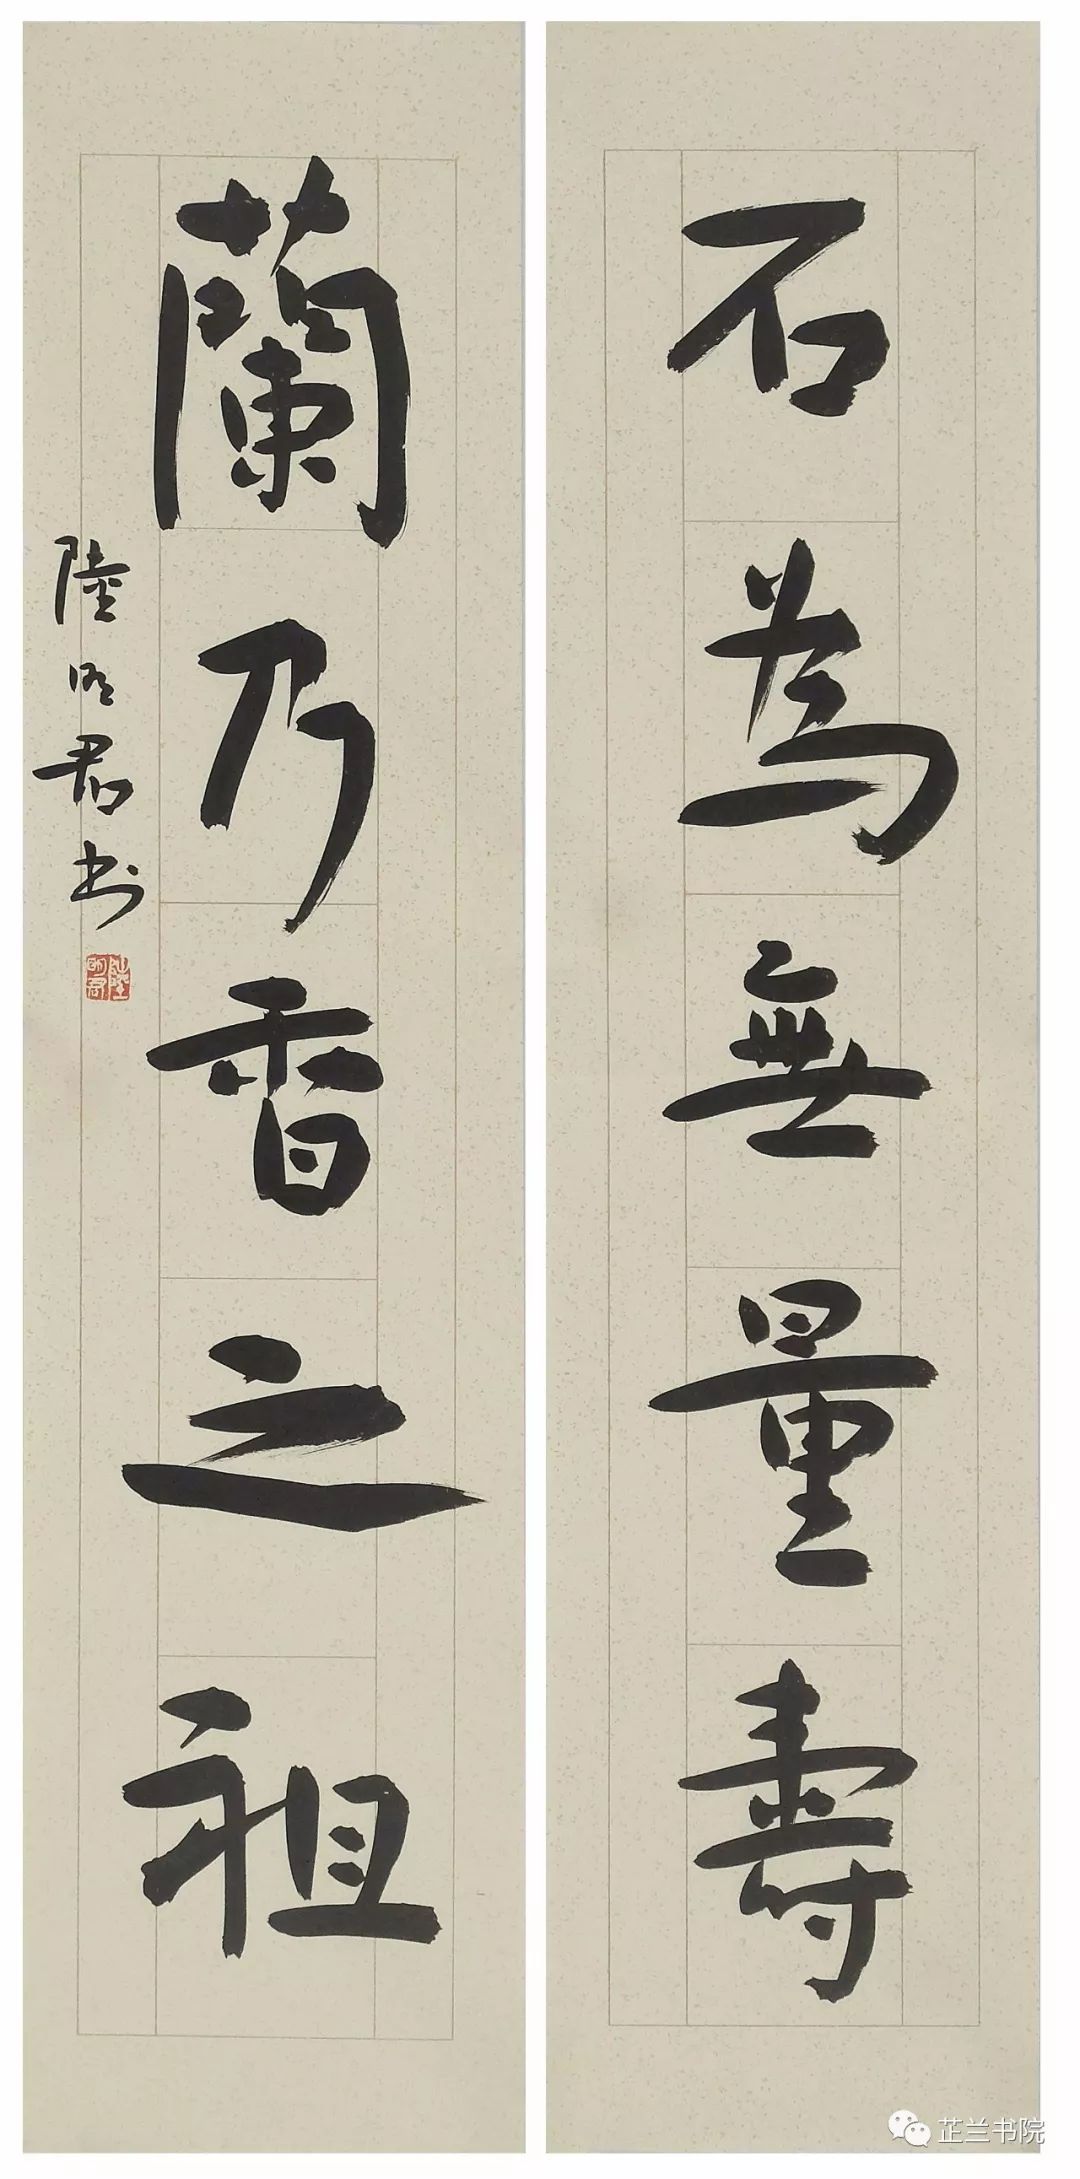 石為無量壽
蘭乃香之祖
陸明君书
陸明君
芷兰书院